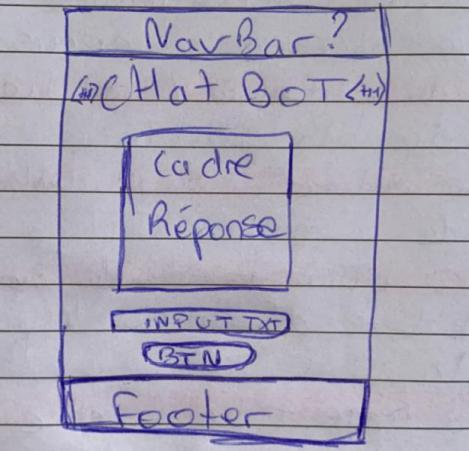 NavBar?
<H1> CHat BOT <H1>
Cadre
Réponse
INPUT TXT
BTN
Footer